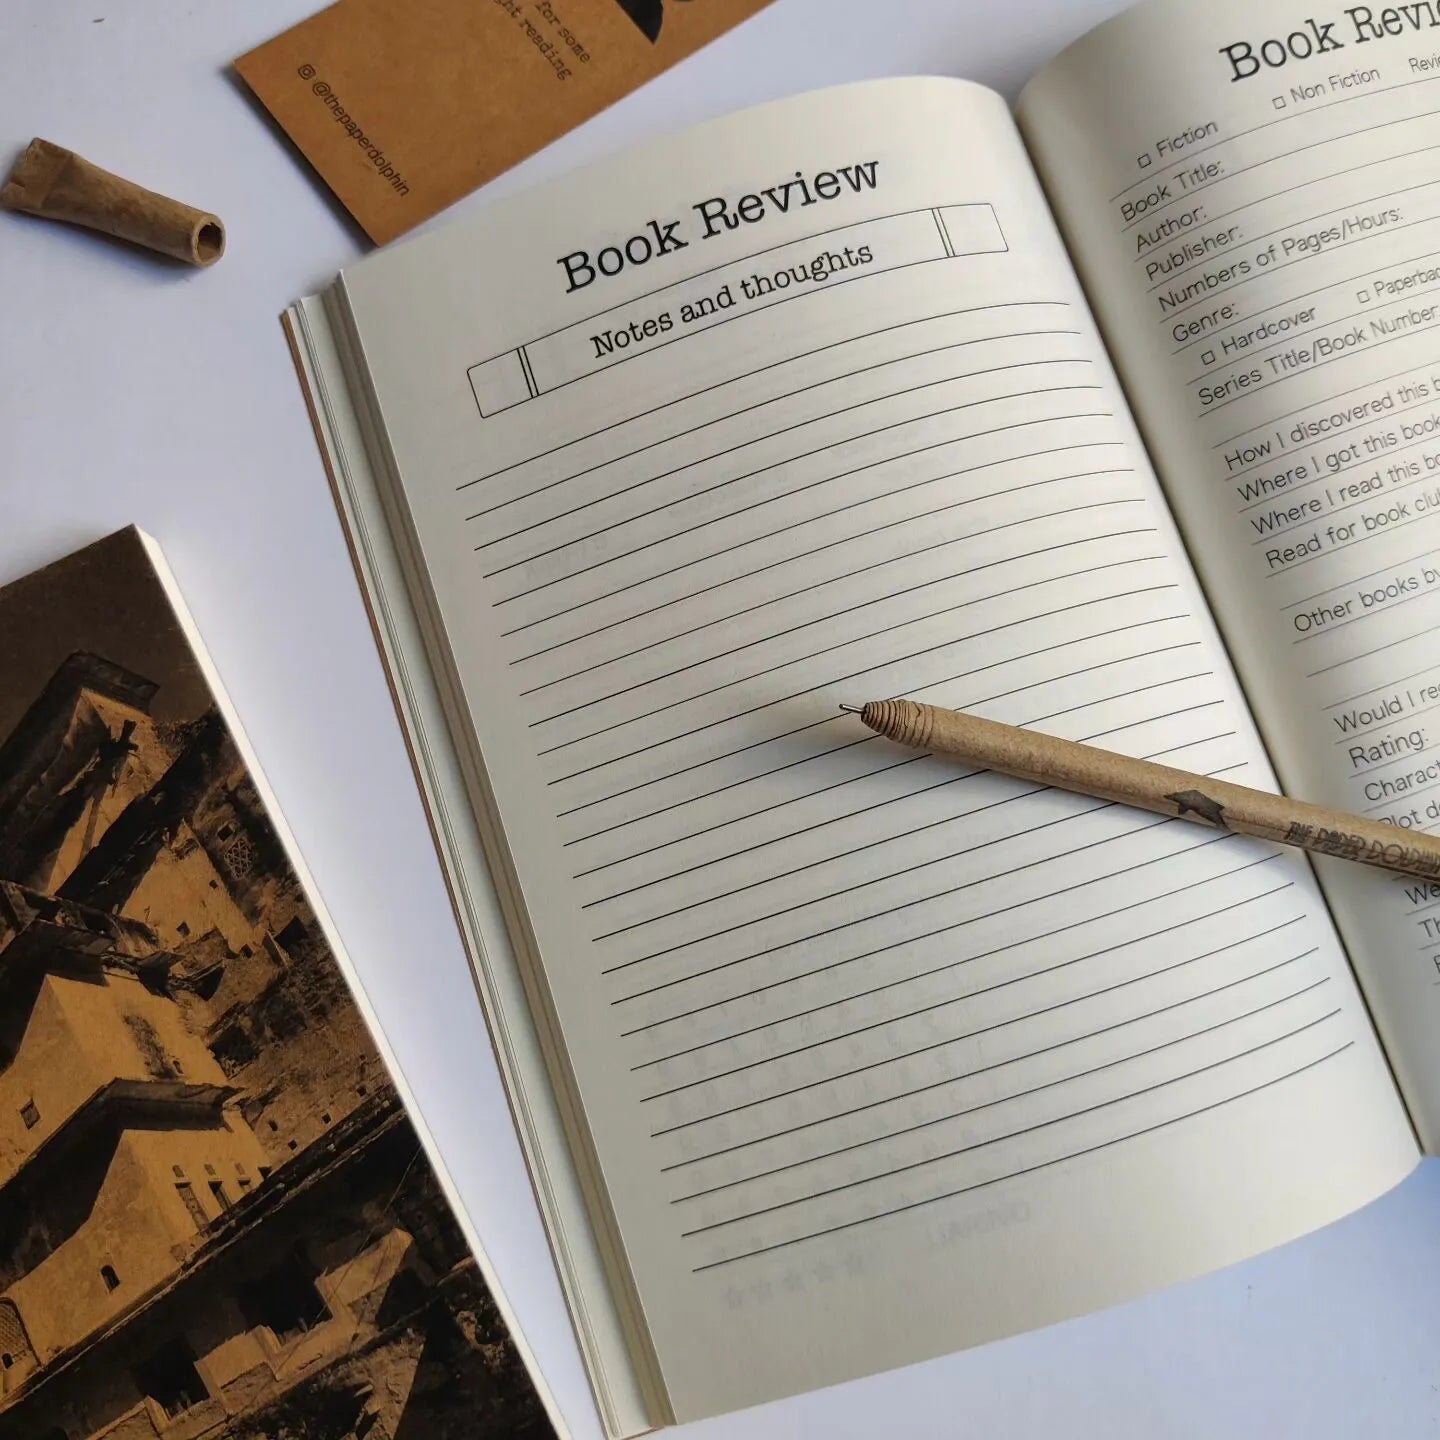 for some
ght reading
@thepaperdolphin
Book Review
Notes and thoughts
Book Revi
□ Fiction □ Non Fiction Revi
Book Title:
Author:
Publisher:
Numbers of Pages/Hours:
Genre:
□ Hardcover □ Paperbac
Series Title/Book Number:
How I discovered this b
Where I got this book
Where I read this bo
Read for book clu
Other books by
Would I re
Rating:
Charact
Plot d
THE PAPER DOLPHIN
We
Th
OVERALL